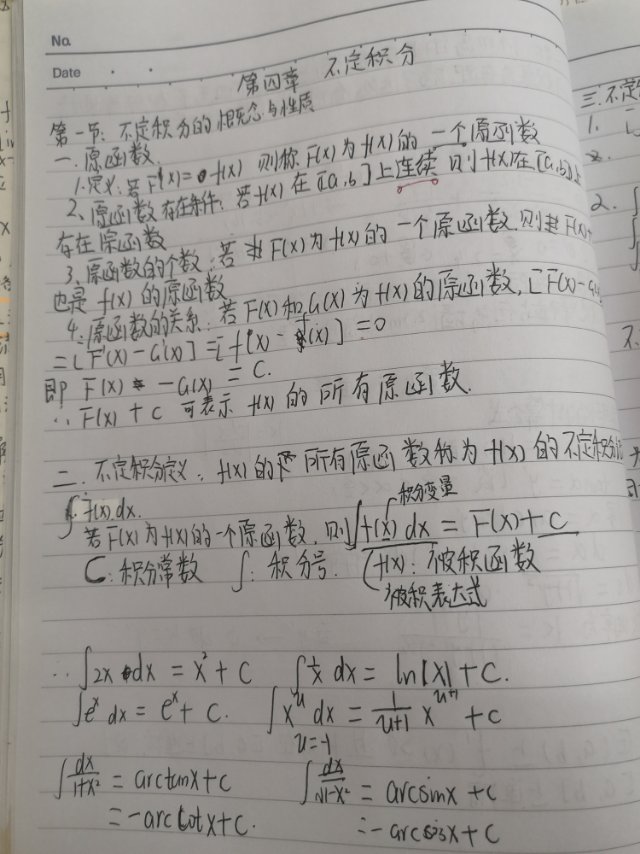 No.
Date
第四章 不定积分
第一节：不定积分的概念与性质
一.原函数.
1.定义：若 F'(x)= f(x) 则称 F(x)为f(x)的 一个原函数
2、原函数存在条件：若f(x) 在 [a,b]上连续 则f(x)在[a,b]上
存在原函数
3.原函数的个数：若 F(x)为f(x)的一个原函数.则 F(x)+
也是 f(x)的原函数
4.原函数的关系：若F(x)和G(x)为f(x)的原函数, [F(x)-G(x)
=[F'(x)-G'(x)]=[f(x)-f(x)]=0
即 F(x) -G(x) = C.
∴F(x)+C 可表示 f(x)的所有原函数.
二.不定积分定义：f(x)的 所有原函数称为f(x)的不定积分
∫f(x)dx.
积分变量
若F(x)为f(x)的一个原函数,则∫f(x)dx = F(x)+C
C:积分常数 ∫:积分号. f(x):被积函数
被积表达式
∴∫2x dx = x²+C ∫1/x dx = ln|x|+C.
∫eˣ dx = eˣ+C. ∫xᵘ dx = 1/(u+1) xᵘ⁺¹ +C
u=-1
∫dx/(1+x²) = arctanx+C ∫dx/√(1-x²) = arcsinx +C
=-arccotx+C. =-arccosx+C
三.不定
1.
2.